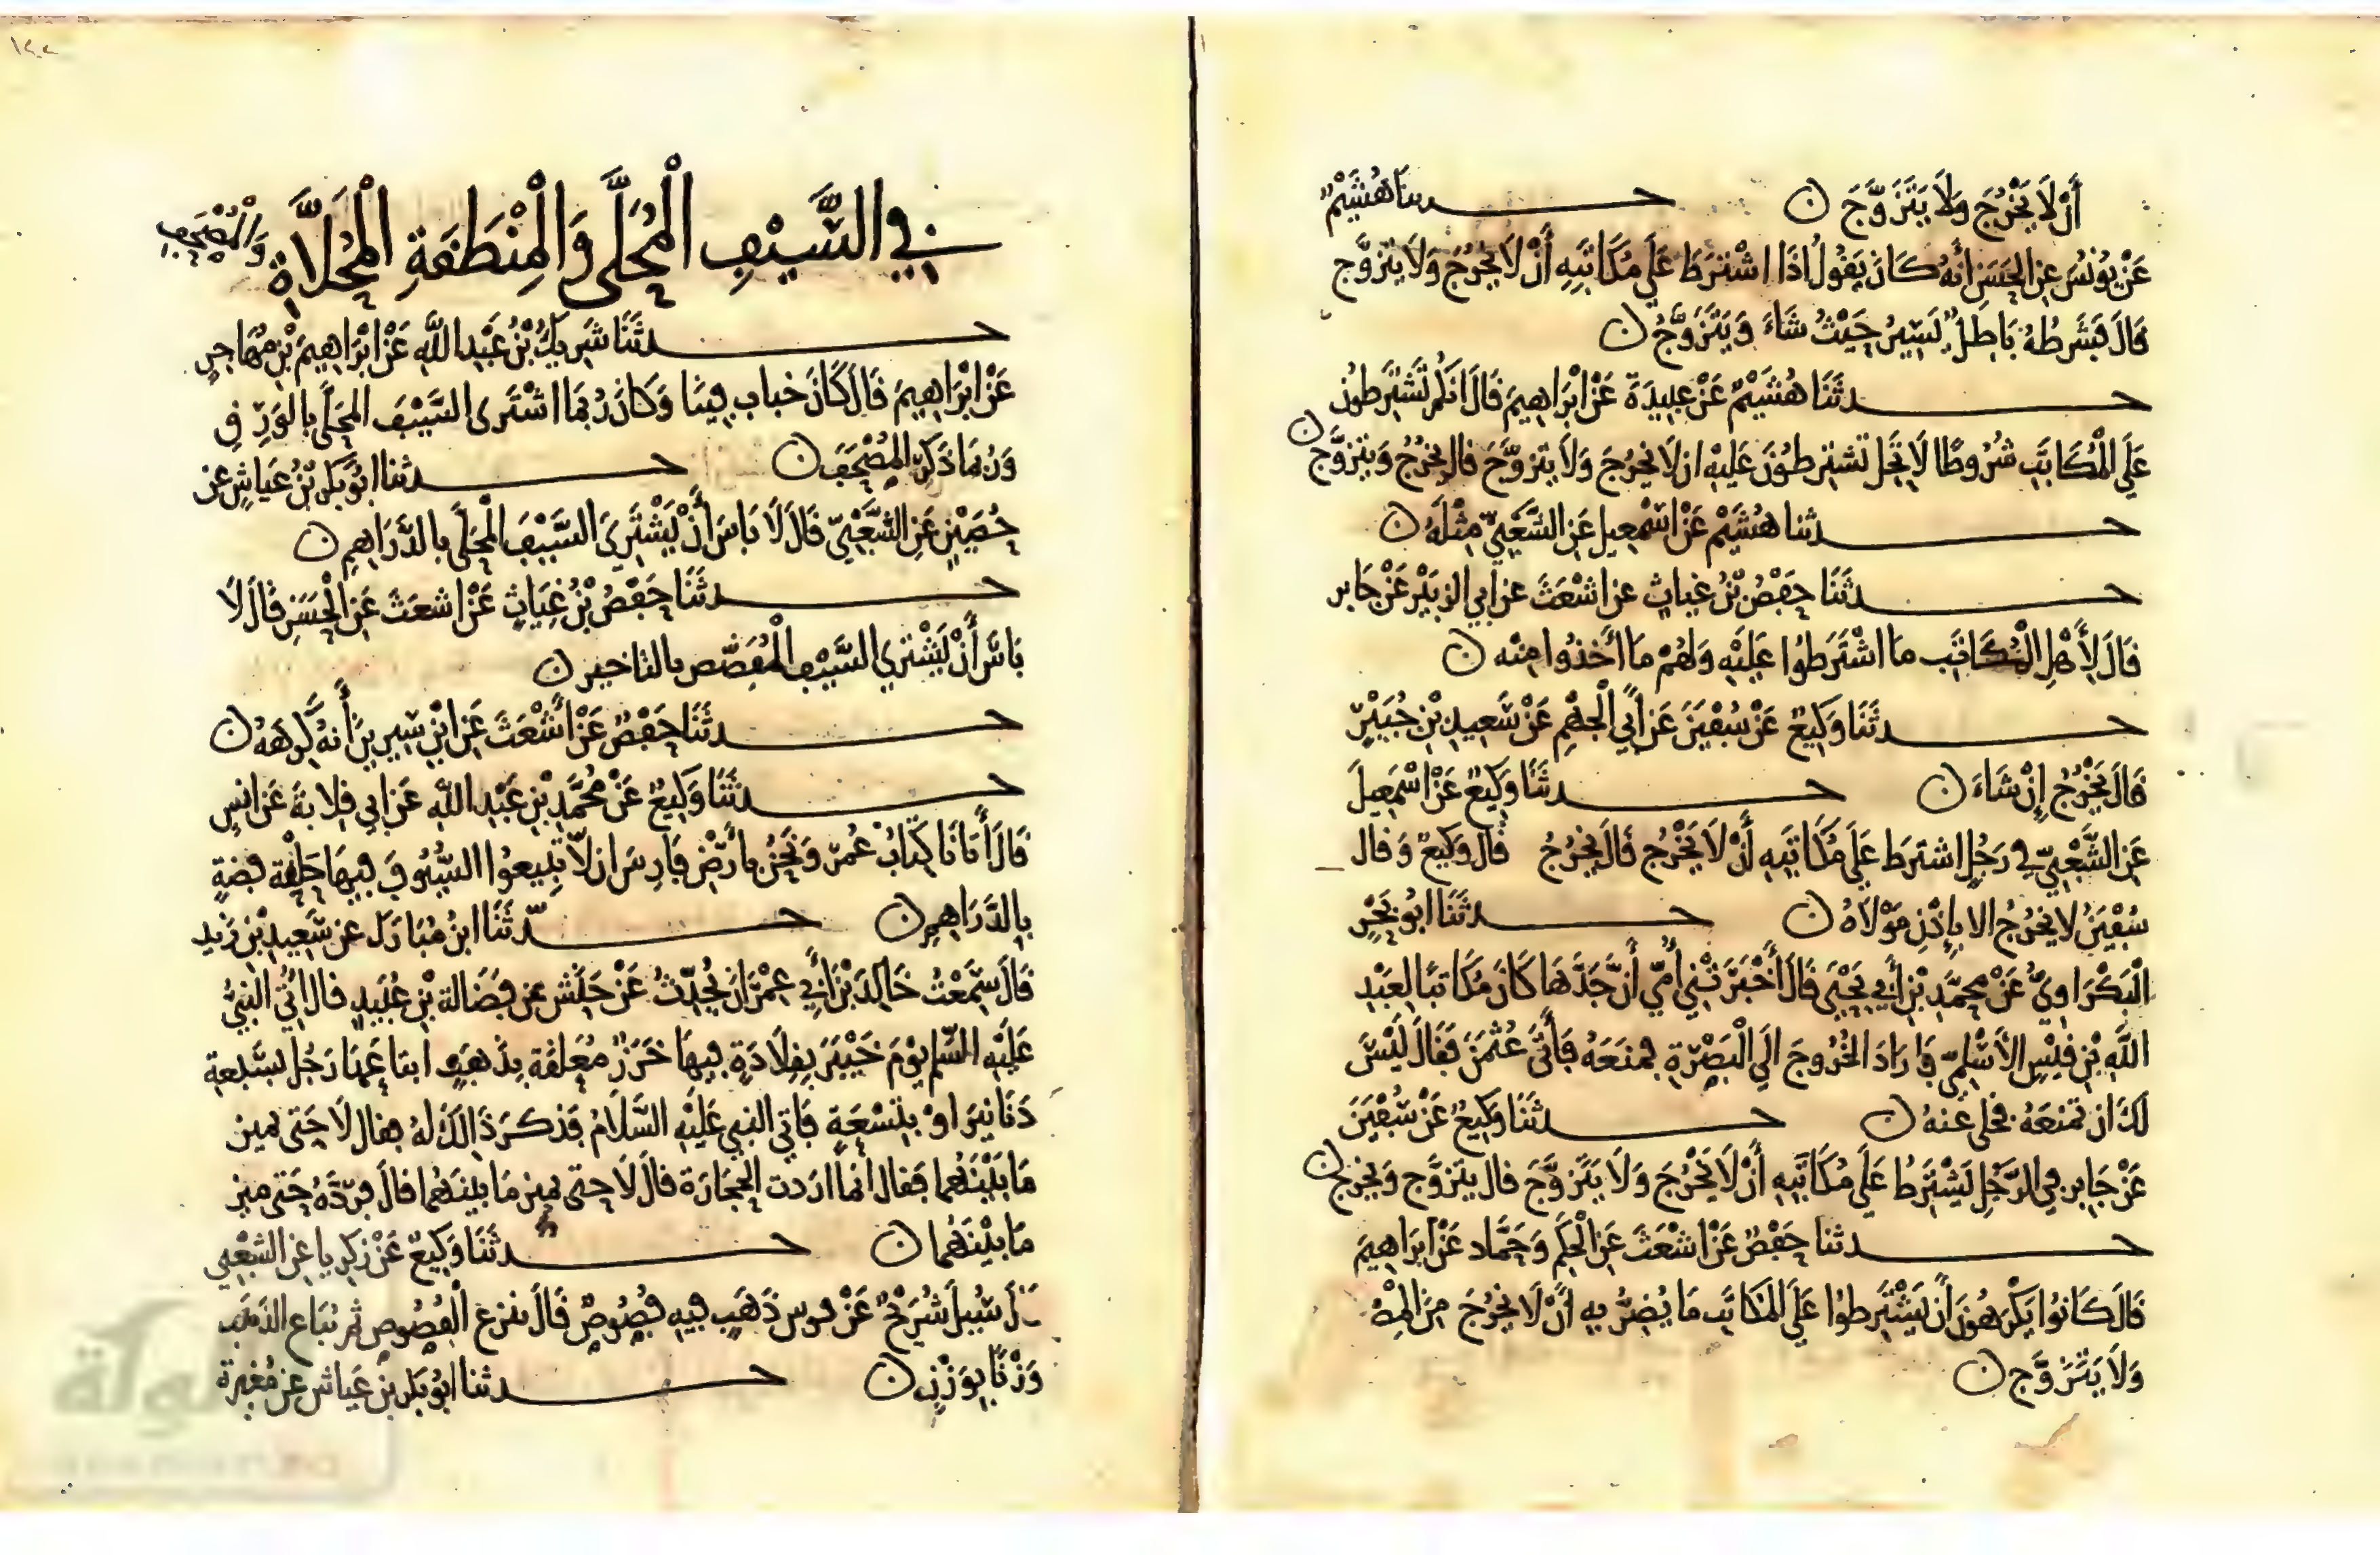 أَنْ لَا يَخْرُجَ وَلَا يَتَزَوَّجَ ن حدثنا هُشَيْمٌ
عَنْ يُونُسَ عَنِ الْحَسَنِ انَّهُ كَانَ يَقُولُ اذَا اشْتَرَطَ عَلَى مُكَاتَبِهِ أَنْ لَا يَخْرُجَ وَلَا يَتَزَوَّجَ
قَالَ فَشَرْطُهُ بَاطِلٌ يَسِيرُ حَيْثُ شَاءَ وَيَتَزَوَّجُ ن
حدثَنَا هُشَيْمٌ عَنْ عُبِيدَةَ عَنْ ابْرَاهِيمَ قَالَ انكُمْ تَشْتَرِطُونَ
عَلَى الْمُكَاتَبِ شُرُوطًا لَا تَحِلّ تَشْتَرِطُونَ عَلَيْهِ ان لَا يَخْرُجَ وَلَا يَتَزَوَّجَ قال يَخْرُجُ وَيَتَزَوَّجُ ن
حدثنا هُشَيْمٌ عَنْ اسْمعِيلَ عَنِ الشَّعْبِيِّ مِثْلَهُ ن
حدثَنَا حَفْصُ بْنُ غِيَاثٍ عن اشْعَثَ عن ابي الزبَيْرِ عَنْ جَابِر
قَالَ لِأَهْلِ الْمُكَاتَبِ ما اشْتَرَطُوا عَلَيْهِ وَلَهُمْ مَا أَخَذُوا مِنْه ن
حدثَنَا وَكِيعٌ عَنْ سُفْيَنَ عَنْ أَبِي الْجَهْمِ عَنْ سَعِيدِ بْنِ جُبَيْرٍ
قَالَ يَخْرُجُ إِنْ شَاءَ ن حدثَنَا وَكِيعٌ عَنْ اسْمعِيلَ
عَنِ الشَّعْبِيِّ في رَجُلٍ اشتَرَطَ عَلَى مُكَاتَبِهِ أَنْ لَا يَخْرُجَ قَالَ يَخْرُجُ قَالَ وَكِيعٌ وَقال
سُفْيَنُ لا يَخْرُجُ الا بِإِذْنِ مَوْلَاهُ ن حدثَنَا ابُو بَحْرٍ
الْبَكْرَاوِيُّ عَنْ محَمَّدِ بْنِ أَبِي يَحْيَى قَالَ أَخْبَرَتْنِي أُمِّي أَنَّ جَدَّهَا كَانَ مُكَاتَبًا لِعَبْدِ
اللَّهِ بْنِ قَيْسٍ الأَسْلَمِيِّ وَارَادَ الْخُرُوجَ الَى الْبَصْرَةِ فمنَعَهُ فَأَتَى عُثْمَنَ فَقَالَ لَيْسَ
لَكَ ان تمنَعَهُ فخلى عَنهُ ن حدثَنَا وَكِيعٌ عَنْ سُفْيَنَ
عَنْ جَابِرٍ فِي الرَّجُلِ يَشْتَرِطُ عَلَى مُكَاتَبِهِ أَنْ لَا يَخْرُجَ وَلَا يَتَزَوَّجَ قال يَتَزَوَّج وَيخرج ن
حدثنا حَفْصٌ عَنْ اشْعَثَ عَنِ الْحَكَمِ وَحَمَّاد عَنْ ابْرَاهِيمَ
قَالَ كَانُوا يَكْرَهُونَ أَنْ يَشْتَرِطُوا عَلَى المكَاتَبِ مَا يُضِرُّ بِهِ أَنْ لَا يَخْرُجَ مِنَ الْمِصْرِ
وَلَا يَتَزَوَّج ن
في السَّيْفِ الْمُحَلَّى وَالْمِنْطَقَةِ الْمُحَلَّاةِ وَالْمُصْحَفِ
حدثَنَا شَرِيكُ بْنُ عَبْدِ اللَّهِ عَنْ ابْرَاهِيمَ بْنِ مُهَاجِرٍ
عَنْ ابْرَاهِيمَ قَالَ كَانَ خباب قينا وَكَانَ رُبمَا اشْتَرى السَّيْفَ المحَلَّى بالوَرِقِ
وَرُبَمَا ذَكَرَ الْمُصْحَفَ ن حدثنا ابُو بَكْرِ بْنُ عَيَاشٍ عن
حُصَيْنٍ عَنِ الشَّعْبِيِّ قَالَ لَا بَاسَ أَنْ يَشْتَرِيَ السَّيْفَ الْمُحَلَّى بِالدَّرَاهِمِ ن
حدثَنَا حَفْصُ بْنُ غِيَاثٍ عَنْ اشعَثَ عَنِ الْحَسَنِ قَالَ لَا
بَاسَ أَنْ يَشْتَرِي السَّيْف الْمُفَضَّض بالتاخير ن
حدثَنَا حَفْصٌ عَنْ أَشْعَثَ عَنِ ابْنِ سِيرِينَ أَنهُ كَرِهَهُ ن
حدثَنَا وَكِيعٌ عَنْ مُحَمَّدِ بْنِ عَبْدِ اللَّهِ عَن ابي قِلَابةَ عَن انسٍ
قَالَ أَتَانَا كِتَابُ عُمَرَ وَنَحْنُ بِارْضِ فَارِسَ ان لَا تَبِيعُوا السُّيُوفَ فِيهَا حَلْقة فضةٍ
بِالدَّرَاهِمِ ن حدثَنَا ابنُ مُبَارَك عن سَعِيدِ بْنِ زيد
قَالَ سَمِعْتُ خَالِدَ بْنَ أَبِي عِمْرَانَ يُحَدِّثُ عَنْ حَنَشٍ عن فَضَالة بْنِ عُبَيْدٍ قال اتي النبيُّ
عَلَيْهِ السَّلم يَوْمَ خَيْبَرَ بِقِلَادَةٍ فِيهَا خَرَزٌ مُعَلقة بِذَهَبٍ ابتَاعَهَا رَجُل بسَبعةِ
دَنَانِيرَ اوْ بِتِسْعَةٍ فَاتى النبي عَلَيْهِ السَّلَامُ فَذكرَ ذَالكَ لهُ فقال لَا حَتى تميز
مَا بَيْنَهُمَا فَقال انمَا ارَدت الحِجَارَة قالَ لَا حتى تميز مَا بينَهُمَا قالَ فرَدَّهُ حَتى ميز
مَا بَيْنَهُمَا ن حدثَنَا وَكِيعٌ عَنْ زكريا عن الشعْبي
قَالَ سُيلَ شُرَيْحٌ عَنْ ذَهَبٍ فيه فُصُوصٌ قَالَ تنزع الْفُصُوص ثم تُبَاع الذهَب
وَزْنًا بِوَزْنٍ ن حدثنا ابُو بَكر بن عَيَاش عن مُغِيرة